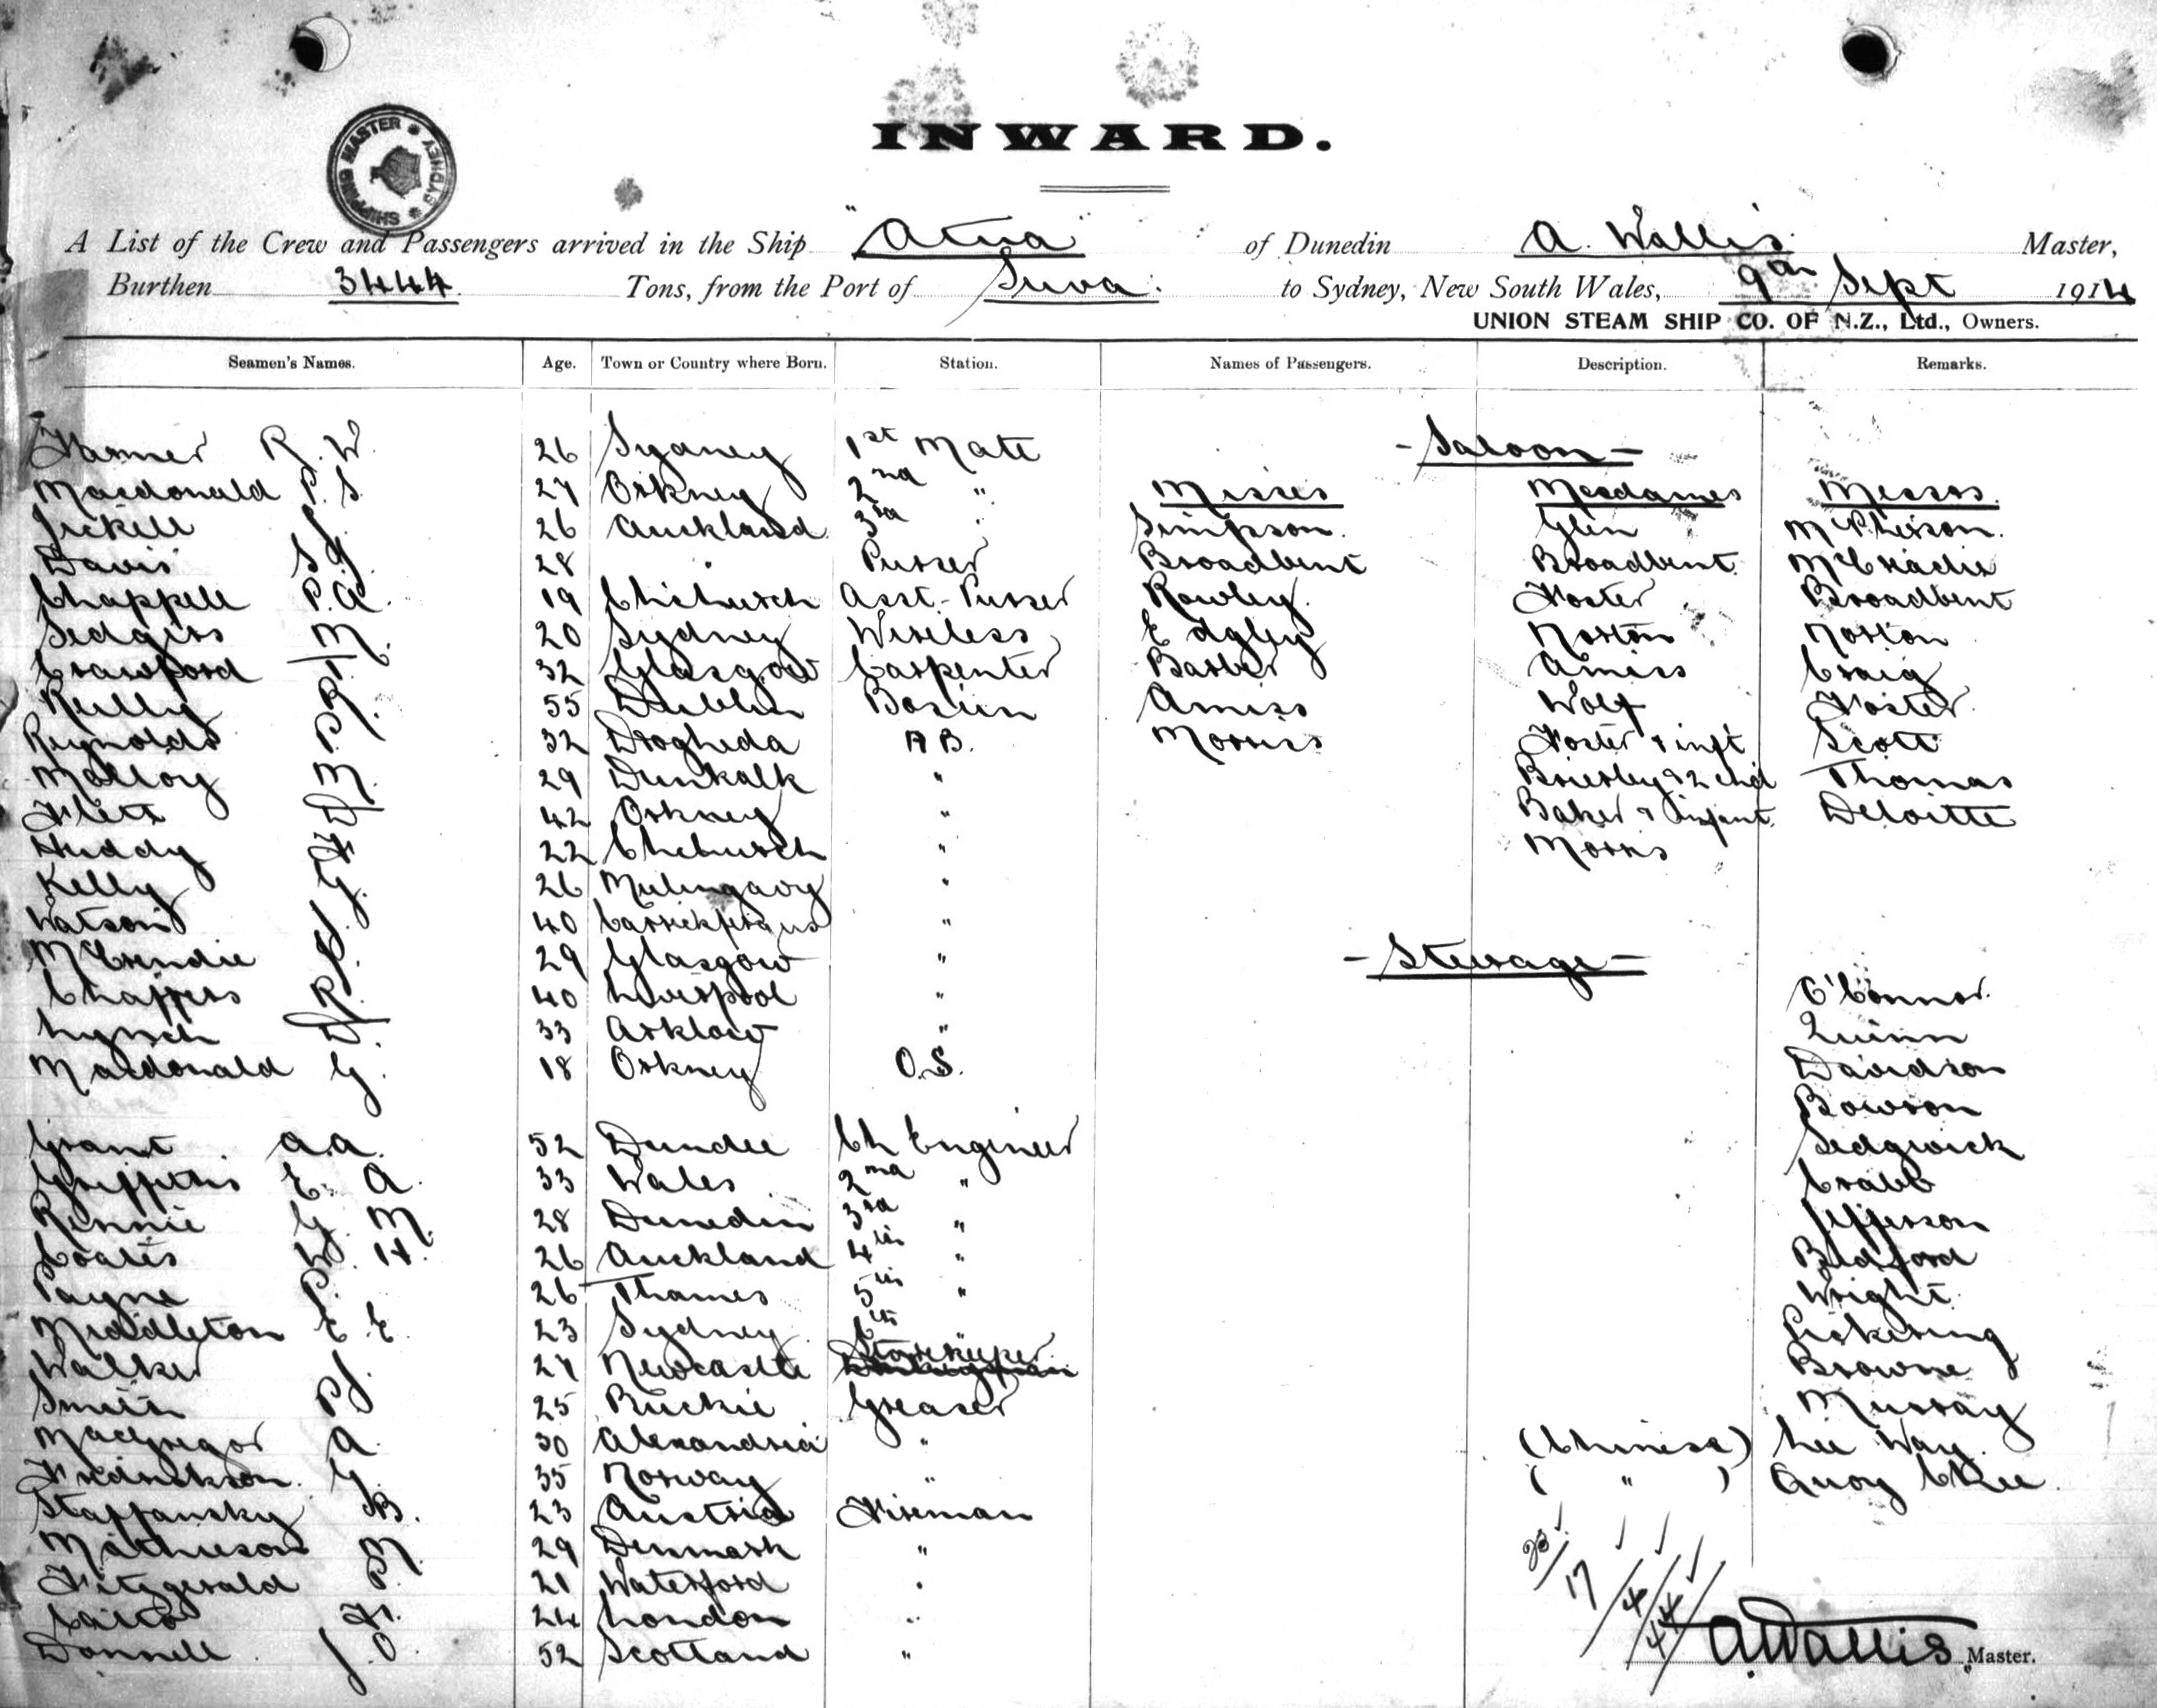 SHIPPING MASTER * SYDNEY *
INWARD.
A List of the Crew and Passengers arrived in the Ship "Atua" of Dunedin A. Wallis Master,
Burthen 3444 Tons, from the Port of Suva. to Sydney, New South Wales, 9th Sept 1914
UNION STEAM SHIP CO. OF N.Z., Ltd., Owners.
Seamen's Names. Age. Town or Country where Born. Station. Names of Passengers. Description. Remarks.
- Saloon -
R. W. 26 Sydney 1st Mate
Macdonald P. S. 27 Orkney 2nd " Misses Mesdames Messrs.
Jickell J. 26 Auckland 3rd " Simpson. Glen McPherson.
Davis S. G. 28 " Purser Broadbent Broadbent McCriadie
Chappell P. A. 19 Chchurch Asst. Purser Rowley. Foster Broadbent
M. 20 Sydney Wireless Edgley Norton Norton
Crawford T. 32 Glasgow Carpenter Barber Amiss Craig
Reilly R. 55 Dublin Bosun Amiss Wolf Foster
Reynolds P. 32 Drogheda A B. Morriss Foster & inft Scott
Malloy M. 29 Dunkalk " Brierley & 2 chd Thomas
Flett D. 42 Orkney " Baker & infant Deloitte
Huddy F. 22 Chchurch " Morris
Kelly G. 26 Mulingavy "
Watson J. 40 Carrickfergus "
McCrindie J. 29 Glasgow " - Steerage -
Chaffers R. 40 Liverpool " O'Connor.
Lynch D. 33 Arklow " Quinn
Macdonald G. 18 Orkney O.S. Davidson
Bowron
Grant A. A. 52 Dundee Ch Engineer Sedgwick
Griffiths E. A. 33 Wales 2nd " Crabb
Rennie G. M. 28 Dunedin 3rd " Jefferson
Coates W. H. 26 Auckland 4th " Bedford
Payne P. 26 Thames 5th " Wright
Middleton E. E. 23 Sydney 6th Pickering
Walker J. 27 Newcastle Storekeeper Browne
Smith P. 25 Buckie Greaser Murray
MacGregor A. 30 Alexandria " (Chinese) Lee Way.
Fredrickson. G. 35 Norway " ( " ) Quoy Chee.
Staffansky B. 23 Austria Fireman
Mathieson M. 29 Denmark "
Fitzgerald P. 21 Waterford "
F. 24 London "
Donnell J. O. 52 Scotland "
17 / 4 / 44
A. Wallis Master.